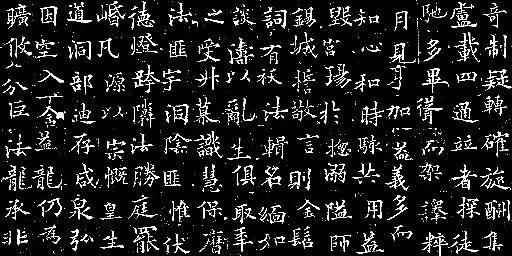 奇制疑轉確旋酬集
盧載四通竝者探徒
馳多畢聲而架譯粹
月見耳加益義多而
知心和時脉共用益
毀宮於溺隘師
錫城敬言則金
詞有法輯名緬加
談濤以亂生俱取年
之受升慕識慧保磨
法匪字洄陰匪惟伏
德燈跨隣法勝庭
凡源以宗慨皇生
道洞部迪存咸泉弘
因空入金益龍仍為
曠分巨法龍承非